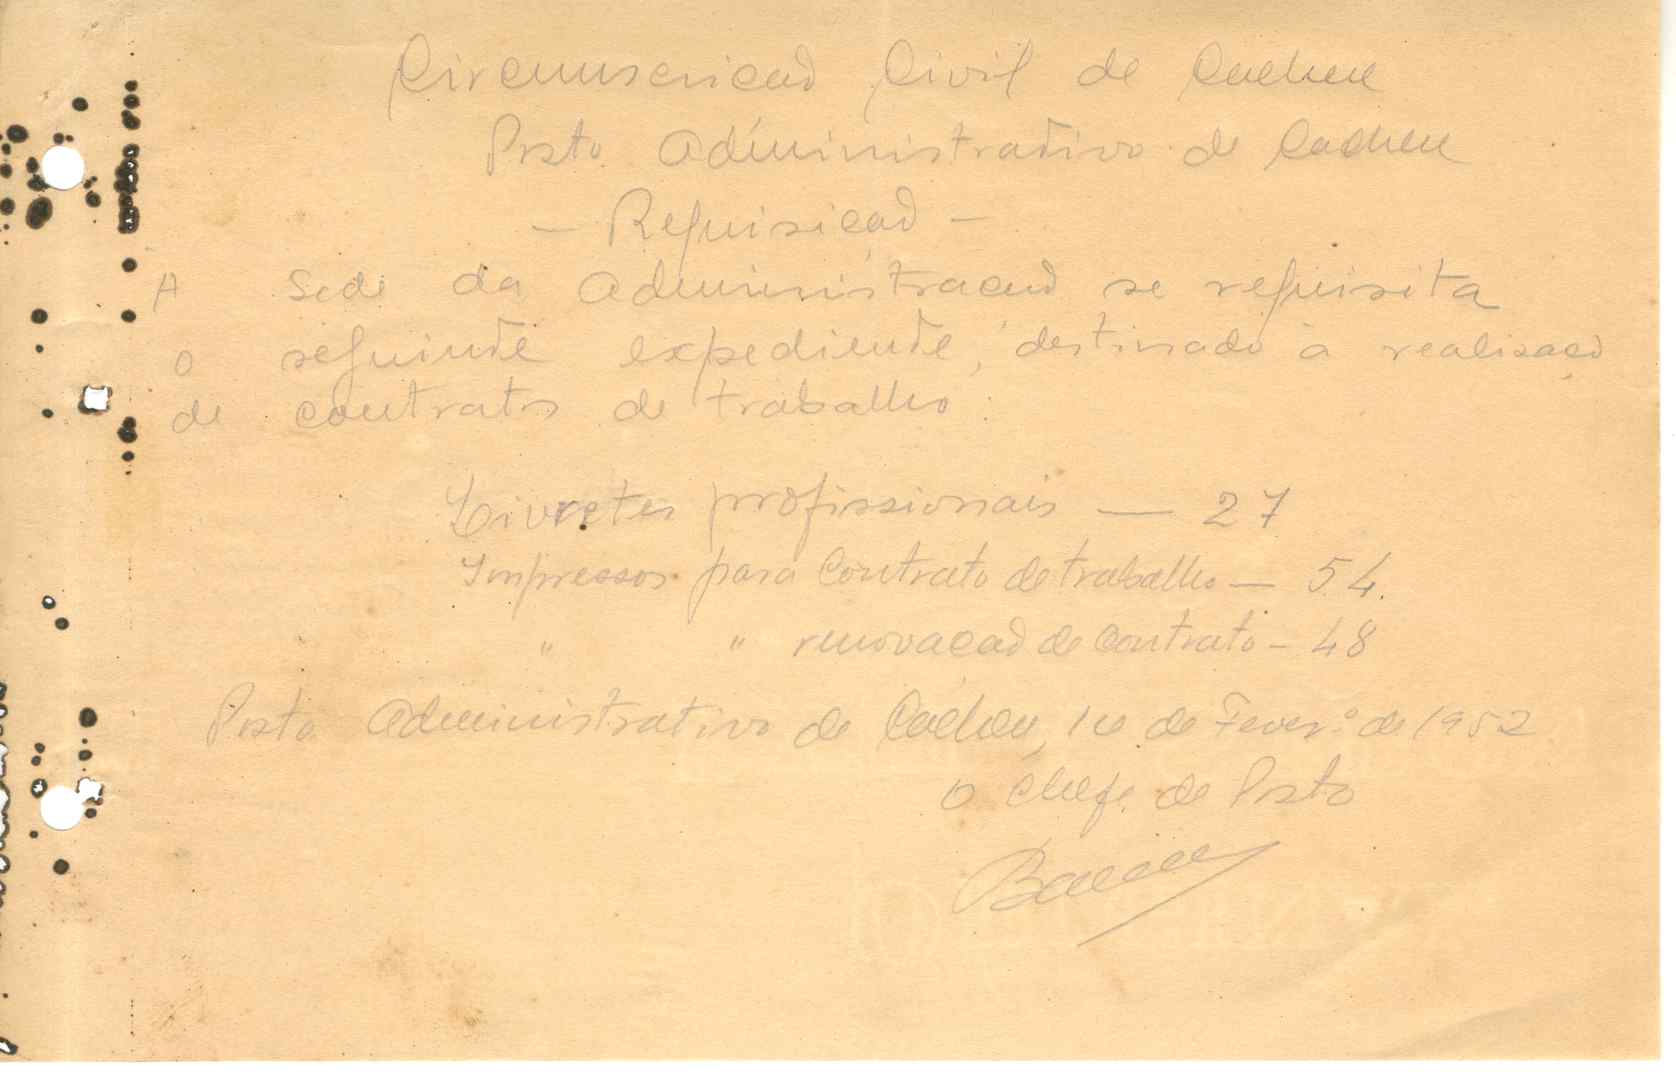 Circunscricaõ Civil de Cacheu
Posto Administrativo de Cacheu
— Requisicaõ —
A Sede da Administracaõ se requisita
o seguinte expediente, destinado à realisação
de contratos de trabalho:
Livretes profissionais — 27
Impressos para Contrato de trabalho — 54.
" " renovacaõ de Contrato — 48
Posto Administrativo de Cacheu, de Fever.º de 1952
O Chefe de Posto